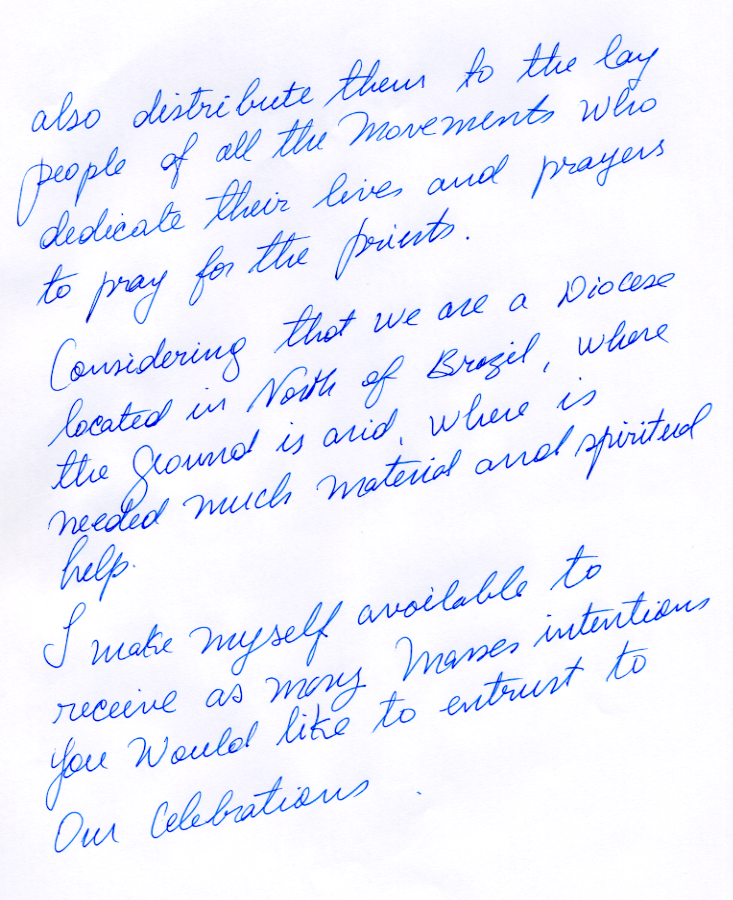 also distribute them to the lay
people of all the Movements who
dedicate their lives and prayers
to pray for the priests.
Considering that we are a Diocese
located in North of Brazil, where
the ground is arid, where is
needed much material and spiritual
help.
I make myself available to
receive as many Masses intentions
you would like to entrust to
Our Celebrations.